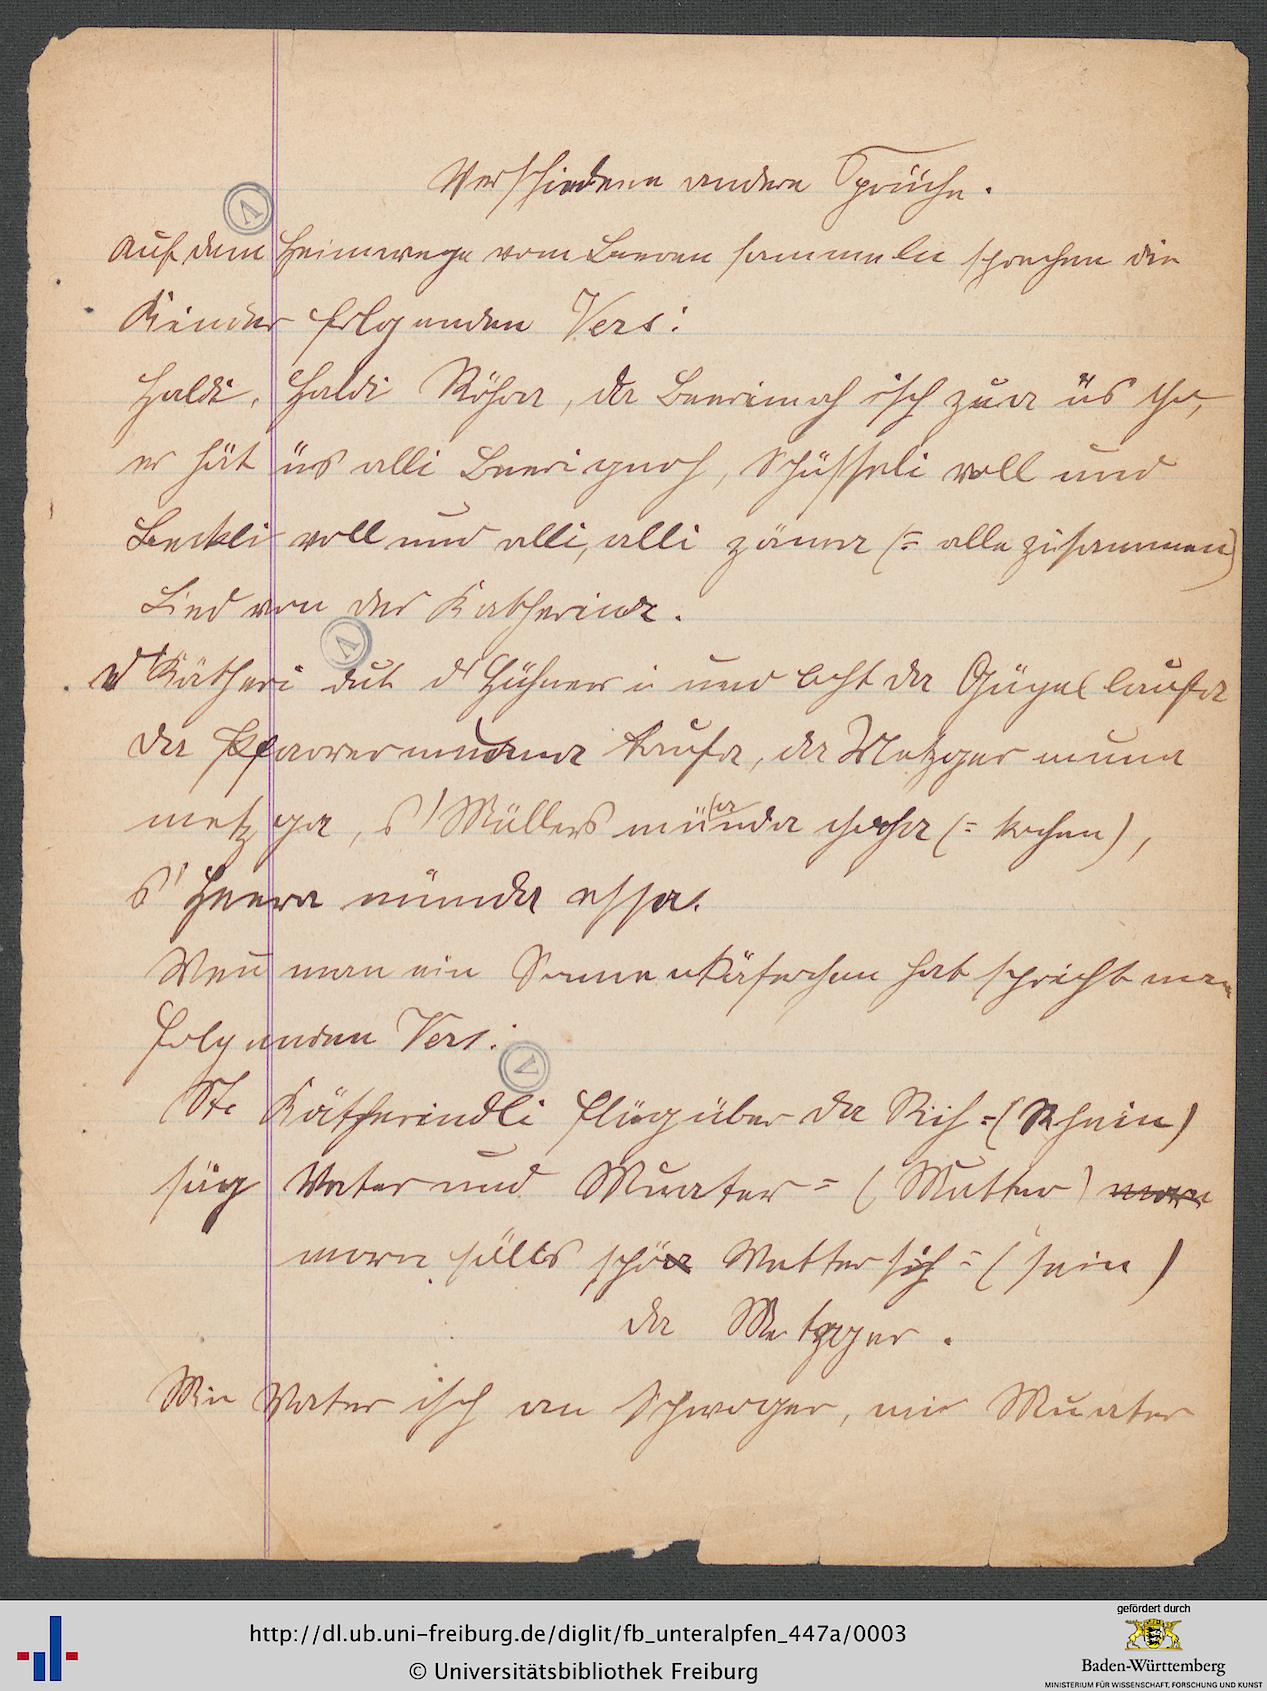 Verschiedene andere Sprüche.
Auf dem Heimwege vom Beeren sammeln sprechen die
Kinder folgenden Vers:
Haldi, Haldi Röhra, da Beerimah isch zua üs cho,
er hät üs alli Beeri gnoh, Schüsseli voll und
Beckli voll und alli, alli zäma (= alle zusammen)
Lied von der Katherina.
d' Kätheri dut d' Hühner i und loht da Gügel laufa
da Pfarrer muäna taufa, da Metzger muna
metzga, s' Müllers münda chocha (= kochen),
s' Heera münda essa.
Wen man ein Sonnenkäferchen hat spricht man
folgenden Vers:
St. Kätherindli flüg über da Rih = (Rhein)
säg Vater und Muater = (Mutter)
morn sälls schö Wetter sih = (sein)
da Metzger.
Min Vater isch an Schwoger, mis Muater
http://dl.ub.uni-freiburg.de/diglit/fb_unteralpfen_447a/0003
© Universitätsbibliothek Freiburg
gefördert durch
Baden-Württemberg
MINISTERIUM FÜR WISSENSCHAFT, FORSCHUNG UND KUNST